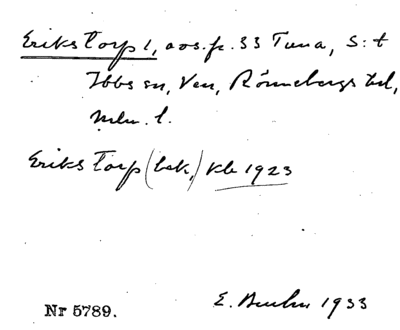 Erikstorp 1, avs.fr. 33 Tuna, S:t
Ibbs sn, Ven, Rönnebergs hd,
Mlm. l.
Erikstorp (bek.) kb 1923
Nr 5789.
E. 1933